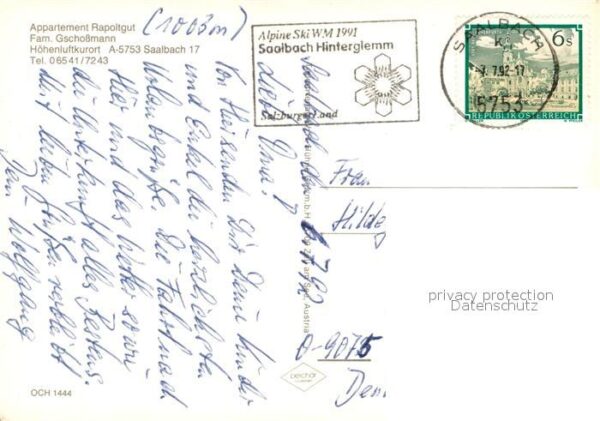 Appartement Rapoltgut
Fam. Gschoßmann
Höhenluftkurort A-5753 Saalbach 17
Tel. 06541/7243
(1003m)
Alpine Ski WM 1991
Saalbach Hinterglemm
Salzburger Land
SAALBACH
7.92-17
5753
6s
REPUBLIK ÖSTERREICH
Saalbach, den 7.7.92
Liebe Oma!
Von Hier senden Dir Deine Kinder
und Enkel die herzlichsten
Urlaubsgrüße. Die Fahrt nach
Hier und das Wetter sowie
die Unterkunft alles Bestens.
Mit lieben Grüßen verbleibt
Dein Wolfgang
Frau
Hilde
O-9075
OCH 1444
privacy protection
Datenschutz